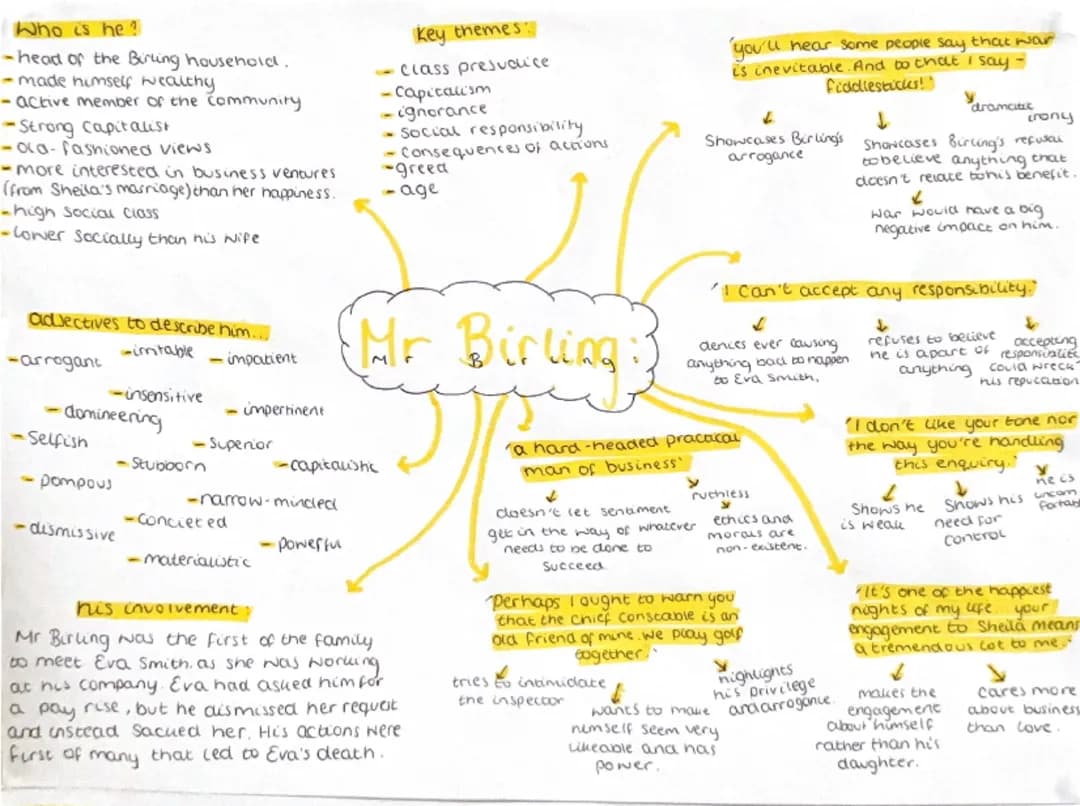 Who is he?
- head of the Birling household.
- made himself wealthy
- active member of the community
- Strong Capitalist
- old-fashioned views
- more interested in business ventures
(from Sheila's marriage) than her happiness.
- high social class
- lower socially than his wife
Key themes:
- class prejudice
- Capitalism
- ignorance
- social responsibility
- consequences of actions
- greed
- age
'you'll hear some people say that war
is inevitable. And to that I say -
fiddlesticks!'
Showcases Birling's
arrogance
Showcases Birling's refusal
to believe anything that
doesn't relate to his benefit.
War would have a big
negative impact on him.
dramatic
irony
'I can't accept any responsibility.'
denies ever causing
anything bad to happen
to Eva Smith.
refuses to believe
he is apart of
anything
accepting
responsibility
could wreck
his reputation
Mr Birling:
Mr Birling
adjectives to describe him...
- arrogant
- irritable
- impatient
- insensitive
- domineering
- impertinent
- Selfish
- Superior
- Stubborn
- capitalistic
- pompous
- narrow-minded
- Concieted
- dismissive
- powerful
- materialistic
'a hard-headed practical
man of business'
doesn't let sentament
get in the way of whatever
needs to be done to
succeed
ruthless
ethics and
morals are
non-existent.
'I don't like your tone nor
the way you're handling
this enquiry.'
Shows he
is weak
Shows his
need for
control
he is
uncom
fortabl
his involvement:
Mr Birling was the first of the family
to meet Eva Smith, as she was working
at his company. Eva had asked him for
a pay rise, but he dismissed her request
and instead Sacked her. His actions were
first of many that led to Eva's death.
'Perhaps I ought to warn you
that the chief constable is an
old friend of mine. We play golf
together.'
tries to intimidate
the inspector
wants to make
himself seem very
likeable and has
power.
highlights
his privilege
and arrogance.
'It's one of the happiest
nights of my life... your
engagement to Sheila means
a tremendous lot to me.'
makes the
engagement
about himself
rather than his
daughter.
Cares more
about business
than love.